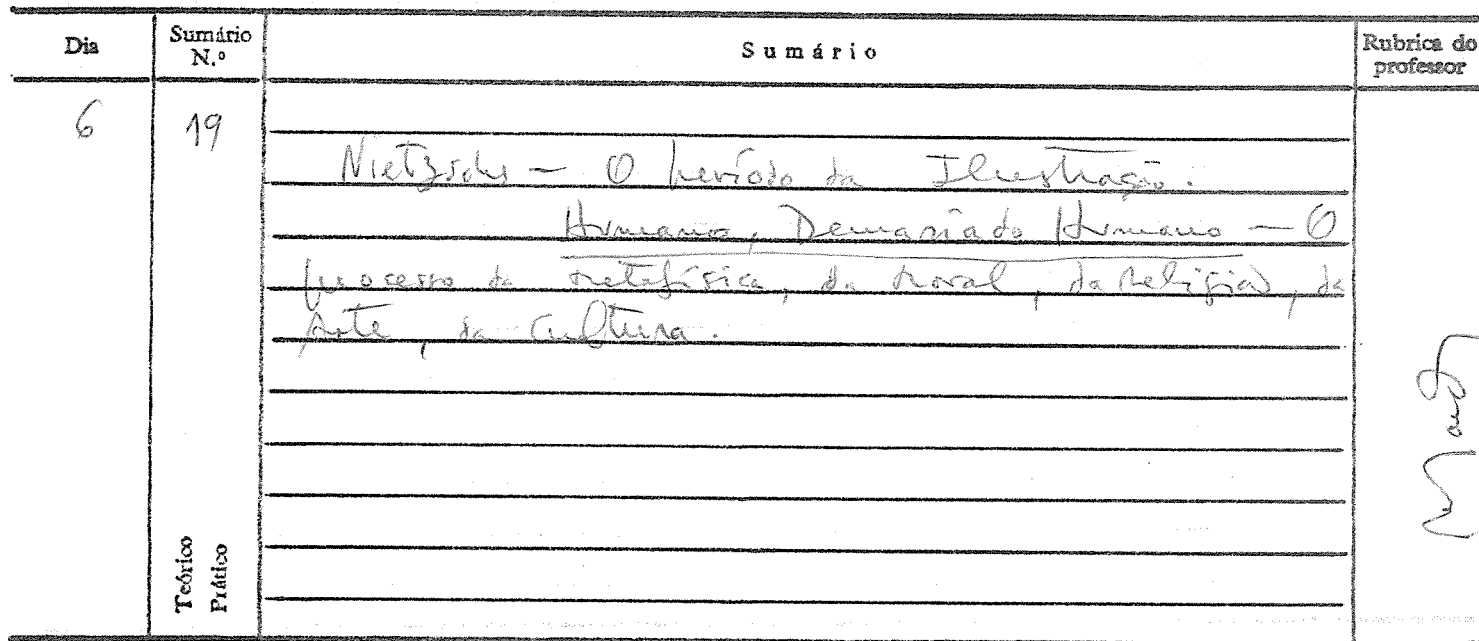 Dia
Sumário N.º
Sumário
Rubrica do professor
6
19
Nietzsche — O período da Ilustração.
Humano, Demasiado Humano — O
processo da metafísica, da moral, da religião, da
Arte, da Cultura.
Teórico
Prático